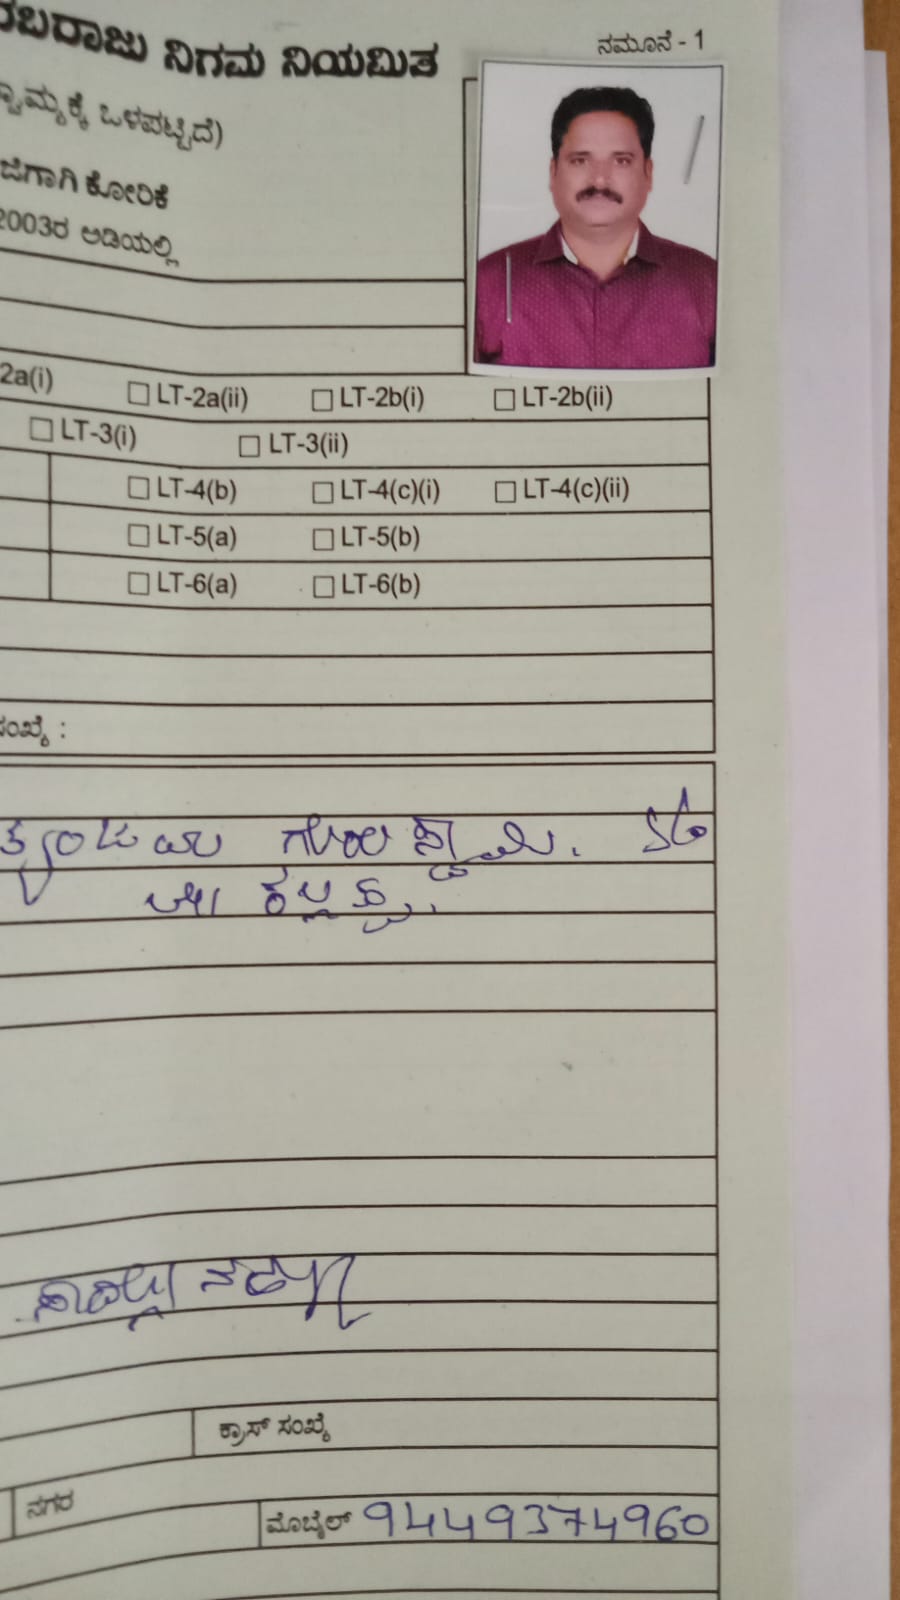 ನಮೂನೆ - 1
ರಬರಾಜು ನಿಗಮ ನಿಯಮಿತ
ಸ್ವಾಮ್ಯಕ್ಕೆ ಒಳಪಟ್ಟಿದೆ)
ಕೋರಿಕೆ
2003ರ ಅಡಿಯಲ್ಲಿ
2a(i) LT-2a(ii) LT-2b(i) LT-2b(ii)
LT-3(i) LT-3(ii)
LT-4(b) LT-4(c)(i) LT-4(c)(ii)
LT-5(a) LT-5(b)
LT-6(a) LT-6(b)
ಸಂಖ್ಯೆ :
ಕ್ರಾಸ್ ಸಂಖ್ಯೆ
ನಗರ ಮೊಬೈಲ್ 9449374960